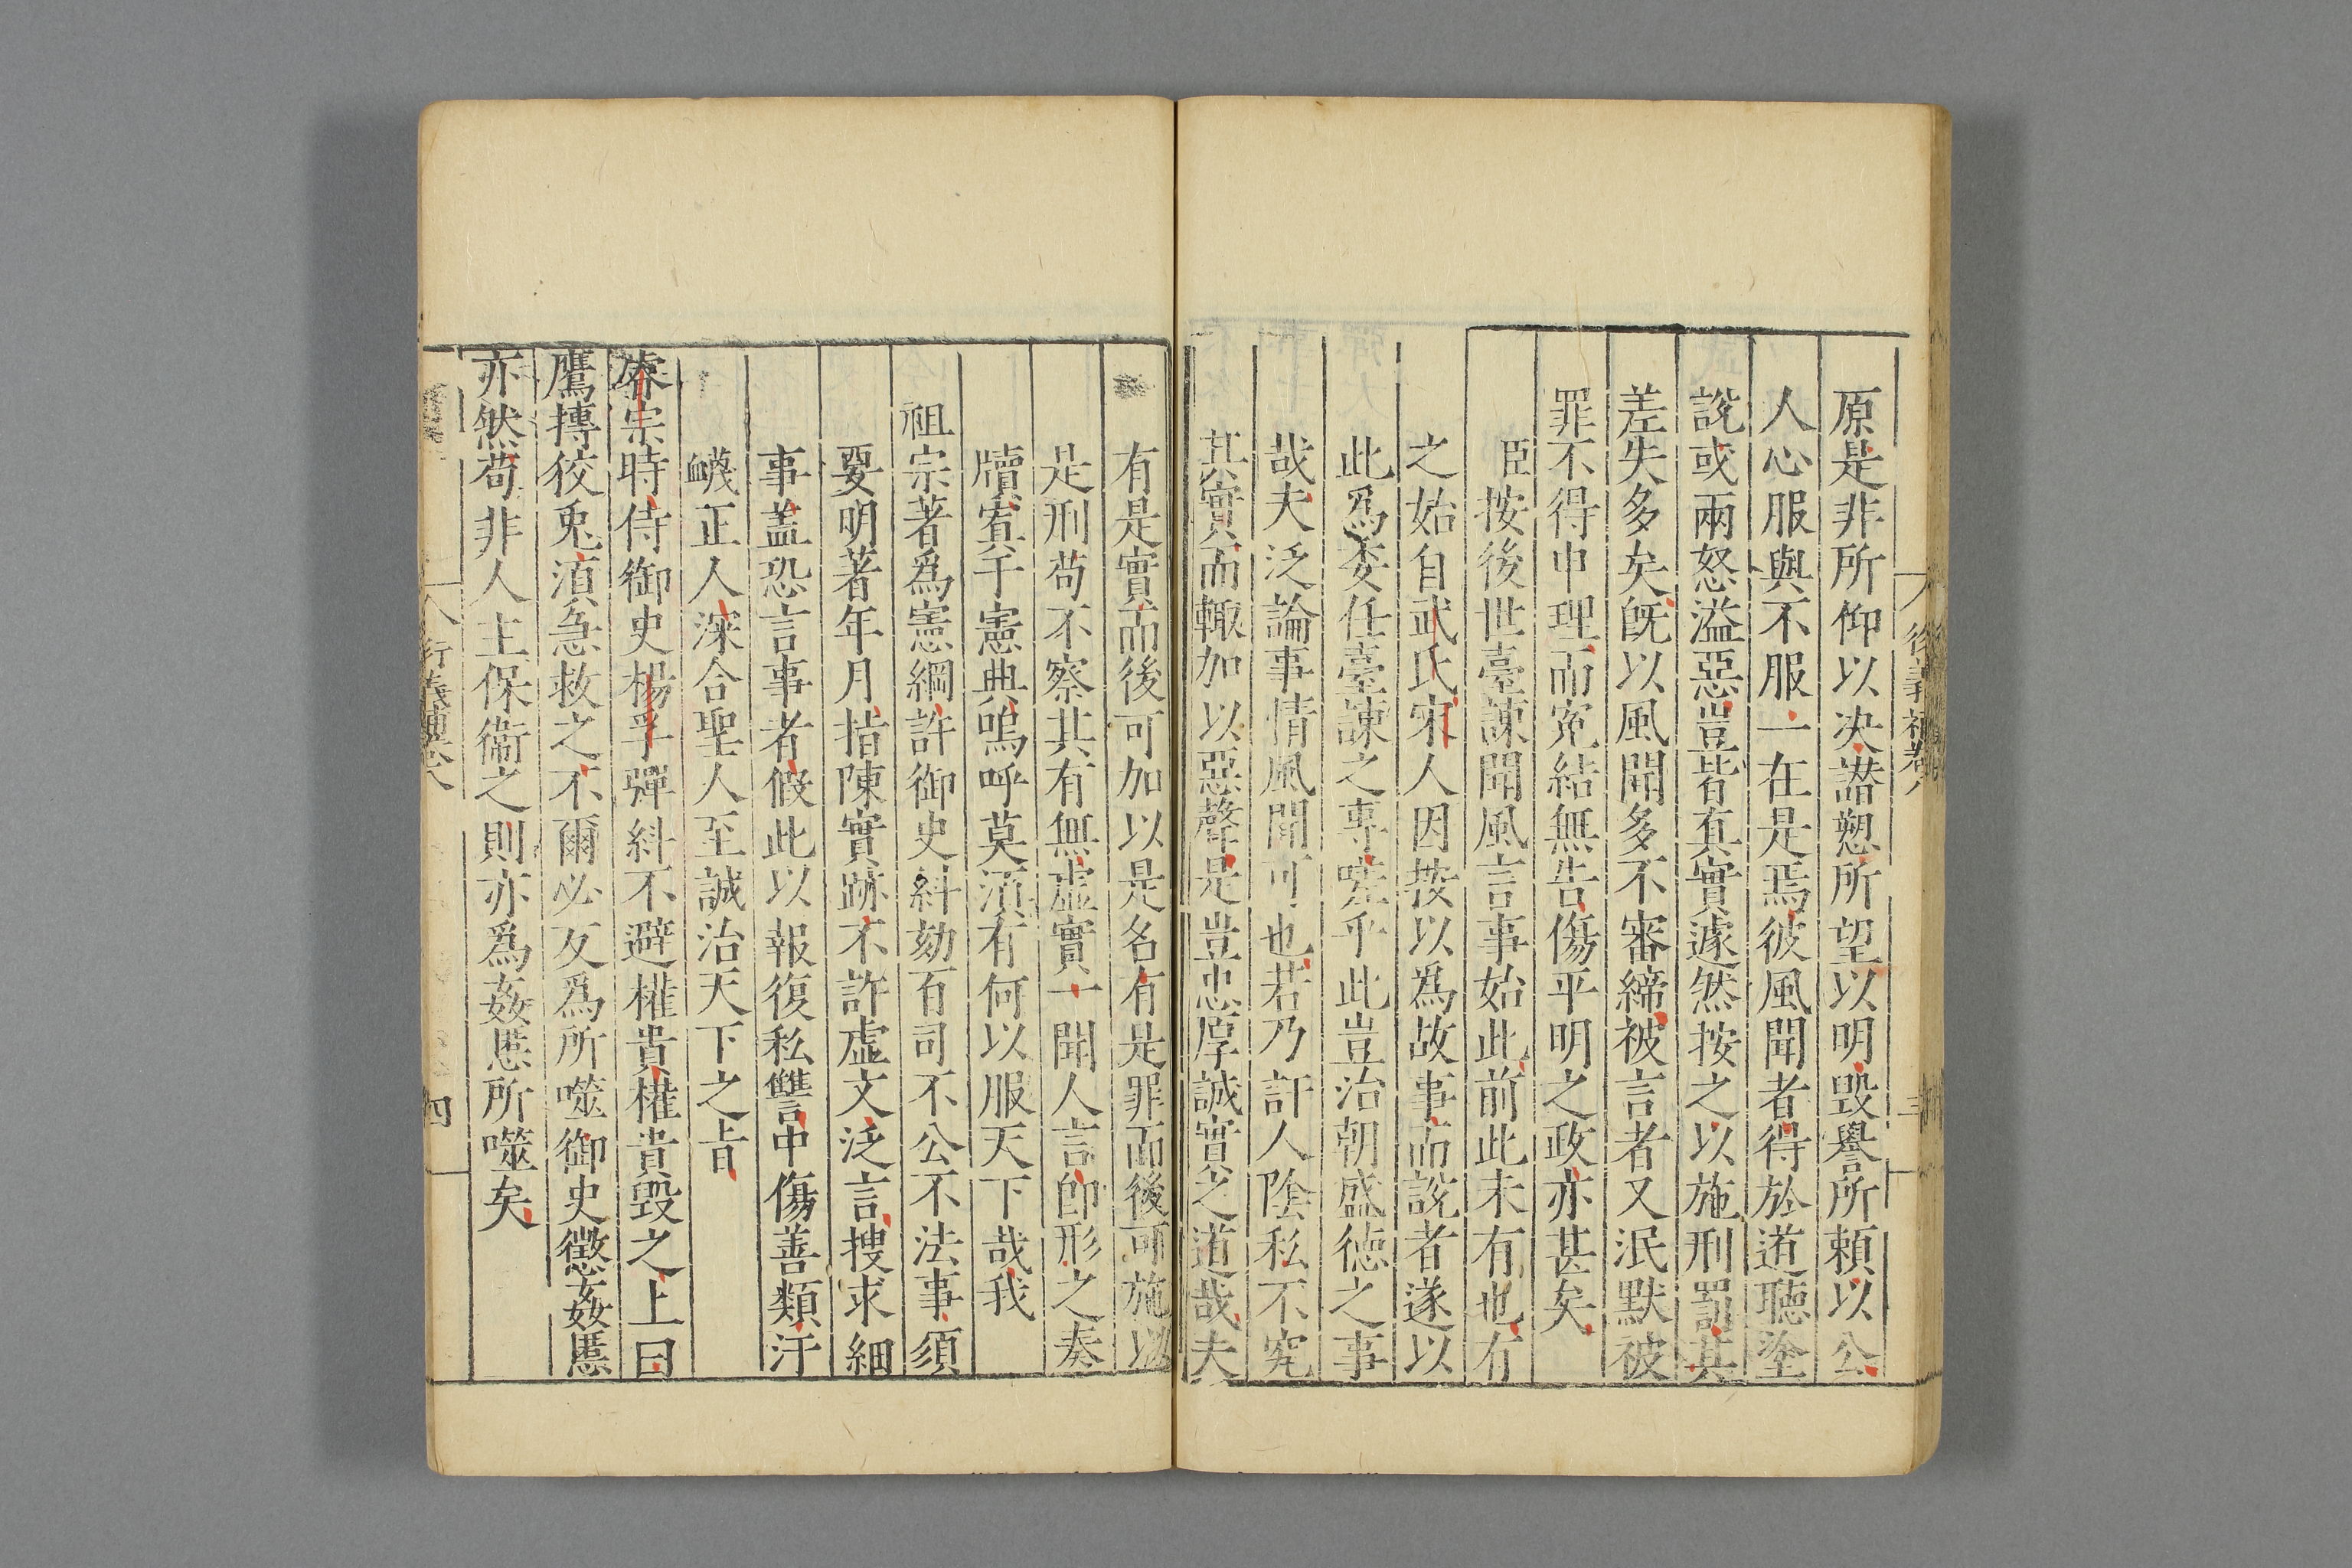 原是非所仰以决譖愬所望以明毁譽所頼以公
人心服與不服一在是焉彼風聞者得於道聽塗
説或兩怒溢惡豈皆真實遽然按之以施刑罰其
差失多矣既以風聞多不審締被言者又泯默被
罪不得申理而寃結無告傷平明之政亦甚矣
臣按後世臺諫聞風言事始此前此未有也有
之始自武氏宋人因按以爲故事而説者遂以
此爲委任臺諫之專嗟乎此豈治朝盛德之事
哉夫泛論事情風聞可也若乃訐人陰私不究
其實而輙加以惡聲是豈忠厚誠實之道哉夫
有是實而後可加以是名有是罪而後可施以
是刑苟不察其有無虚實一聞人言即形之奏
牘寘于憲典嗚呼莫須有何以服天下哉我
祖宗著爲憲綱許御史糾劾百司不公不法事須
要明著年月指陳實跡不許虚文泛言搜求細
事盖恐言事者假此以報復私讐中傷善類汙
衊正人深合聖人至誠治天下之㫖
睿宗時侍御史楊孚彈糾不避權貴權貴毁之上曰
鷹摶狡兎湏急救之不爾必反爲所噬御史懲姦慝
亦然苟非人主保衞之則亦爲姦慝所噬矣
衍義補卷八
四